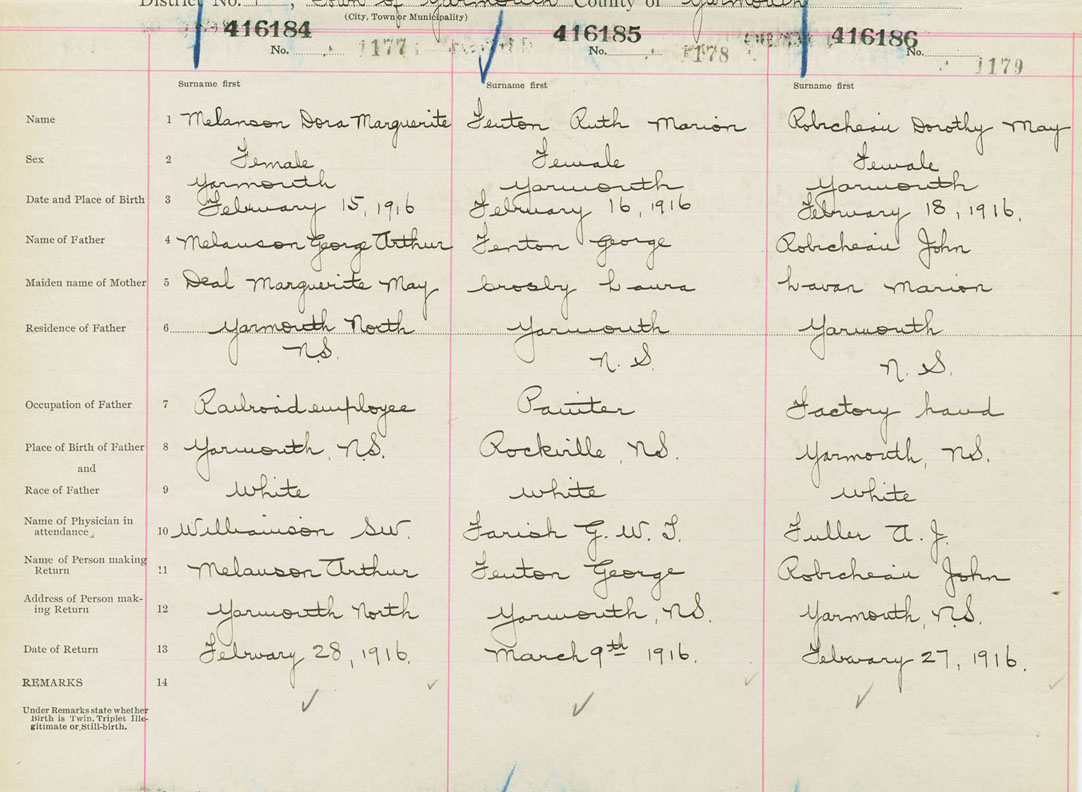 District No. 1, Town of Yarmouth County of Yarmouth
(City, Town or Municipality)
416184 416185 416186
No. 1177 No. 1178 No. 1179
Surname first Surname first Surname first
Name 1 Melanson Dora Marguerite Fenton Ruth Marion Robicheau Dorothy May
Sex 2 Female Female Female
Yarmouth Yarmouth Yarmouth
Date and Place of Birth 3 February 15, 1916 February 16, 1916 February 18, 1916.
Name of Father 4 Melanson George Arthur Fenton George Robicheau John
Maiden name of Mother 5 Deal Marguerite May Crosby Laura Lavan Marion
Residence of Father 6 Yarmouth North Yarmouth Yarmouth
N.S. N. S. N. S.
Occupation of Father 7 Railroad employee Painter Factory hand
Place of Birth of Father 8 Yarmouth, N.S. Rockville, N.S. Yarmouth, N.S.
and
Race of Father 9 White White White
Name of Physician in
attendance 10 Williamson S.W. Farish G. W. T. Fuller A. J.
Name of Person making
Return 11 Melanson Arthur Fenton George Robicheau John
Address of Person mak-
ing Return 12 Yarmouth North Yarmouth, N.S. Yarmouth, N.S.
Date of Return 13 February 28, 1916. March 9th 1916. February 27, 1916.
REMARKS 14
Under Remarks state whether
Birth is Twin, Triplet Ille-
gitimate or Still-birth.